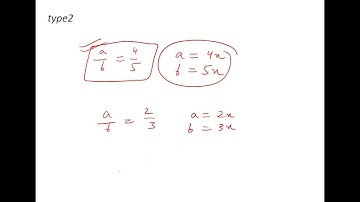 type2
a/b = 4/5 a = 4x
b = 5x
a/b = 2/3 a = 2x
b = 3x